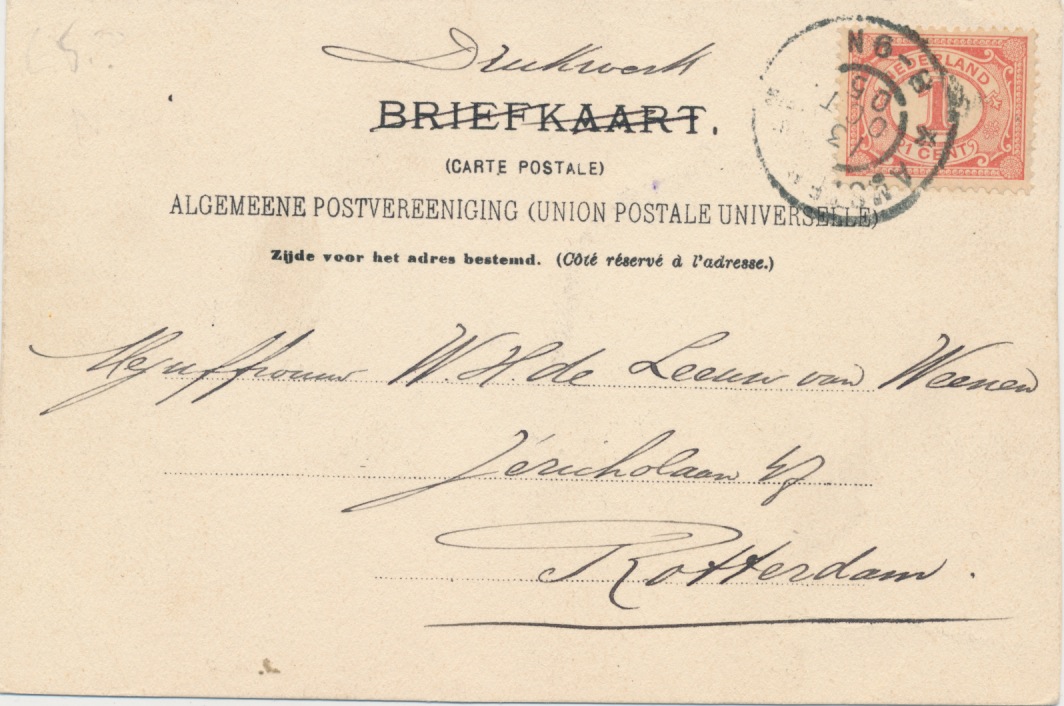 Drukwerk
BRIEFKAART.
(CARTE POSTALE)
ALGEMEENE POSTVEREENIGING (UNION POSTALE UNIVERSELLE)
Zijde voor het adres bestemd. (Côté réservé à l'adresse.)
NEDERLAND
1
1 CENT
Mejuffrouw W. H. de Leeuw van Weenen
Jericholaan
Rotterdam.